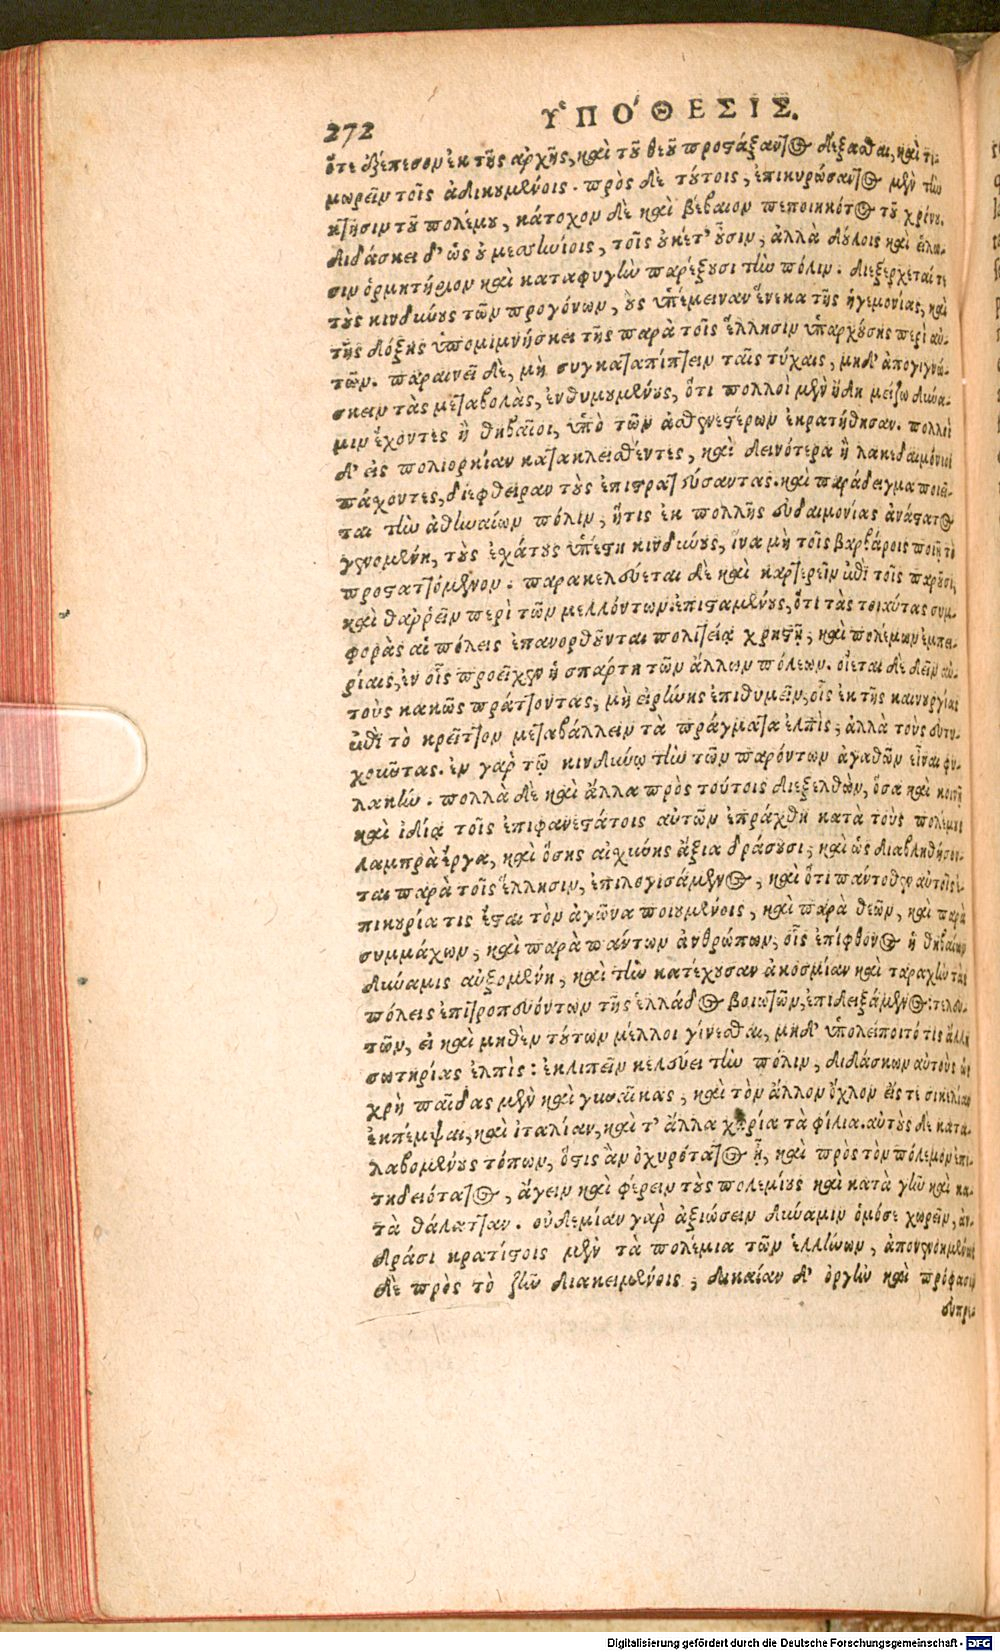 272 ὙΠΟ΄ΘΕΣΙΣ.
ὅτε ἐξέπεσον ἐκ τῆς ἀρχῆς, καὶ τοῦ θεοῦ προστάξαντος δέξασθαι, καὶ τι-
μωρεῖν τοῖς ἀδικουμένοις. πρὸς δὲ τούτοις, ἐπικυρώσαντος μὲν τὴν
κτῆσιν τοῦ πολέμου, κάτοχον δὲ καὶ βέβαιον πεποιηκότος τοῦ χρόνου.
διδάσκει δ' ὡς οὐ μεσσηνίοις, τοῖς οὐκέτ' οὖσιν, ἀλλὰ δούλοις καὶ εἵλω-
σιν ὁρμητήριον καὶ καταφυγὴν παρέξουσι τὴν πόλιν. διεξέρχεταί τε
τοὺς κινδύνους τῶν προγόνων, οὓς ὑπέμειναν ἕνεκα τῆς ἡγεμονίας, καὶ
τῆς δόξης ὑπομιμνήσκει τῆς παρὰ τοῖς ἕλλησιν ὑπαρχούσης περὶ αὐ-
τῶν. παραινεῖ δὲ, μὴ συγκαταπίπτειν ταῖς τύχαις, μηδ' ἀπογιγνώ-
σκειν τὰς μεταβολὰς, ἐνθυμουμένους, ὅτι πολλοὶ μὲν ἤδη μείζω δύνα-
μιν ἔχοντες ἢ θηβαῖοι, ὑπὸ τῶν ἀσθενεστέρων ἐκρατήθησαν. πολλοὶ
δ' εἰς πολιορκίαν κατακλεισθέντες, καὶ δεινότερα ἢ λακεδαιμόνιοι
πάσχοντες, διέφθειραν τοὺς ἐπιστρατεύσαντας. καὶ παράδειγμα ποιεῖ-
ται τὴν ἀθηναίων πόλιν, ἥτις ἐκ πολλῆς εὐδαιμονίας ἀνάστατος
γενομένη, τοὺς ἐχάτους ὑπέστη κινδύνους, ἵνα μὴ τοῖς βαρβάροις ποιῇ τὸ
προσταττόμενον. παρακελεύεται δὲ καὶ καρτερεῖν ἐπὶ τοῖς παροῦσι,
καὶ θαῤῥεῖν περὶ τῶν μελλόντων ἐπισταμένους, ὅτι τὰς τοιαύτας συμ-
φορὰς αἱ πόλεις ἐπανορθοῦνται πολιτείᾳ χρηστῇ, καὶ πολέμων ἐμπει-
ρίαις, ἐν οἷς προεῖχεν ἡ σπάρτη τῶν ἄλλων πόλεων. οἴεται δὲ δεῖν αὐ-
τοὺς κακῶς πράττοντας, μὴ εἰρήνης ἐπιθυμεῖν, οἷς ἐκ τῆς καινουργίας
ἐπὶ τὸ κρεῖττον μεταβάλλειν τὰ πράγματα ἐλπὶς, ἀλλὰ τοὺς εὐτυ-
χοῦντας. ἐν γὰρ τῷ κινδύνῳ τὴν τῶν παρόντων ἀγαθῶν εἶναι φυ-
λακήν. πολλὰ δὲ καὶ ἄλλα πρὸς τούτοις διεξελθὼν, ὅσα καὶ κοινῇ
καὶ ἰδίᾳ τοῖς ἐπιφανεστάτοις αὐτῶν ἐπράχθη κατὰ τοὺς πολέμους
λαμπρὰ ἔργα, καὶ ὅσης αἰσχύνης ἄξια δράσουσι, καὶ ὡς διαβληθήσον-
ται παρὰ τοῖς ἕλλησιν, ἐπιλογισάμενος, καὶ ὅτι παντοθεν αὐτοῖς ἐ-
πικουρία τις ἔσται τὸν ἀγῶνα ποιουμένοις, καὶ παρὰ θεῶν, καὶ παρὰ
συμμάχων, καὶ παρὰ πάντων ἀνθρώπων, οἷς ἐπίφθονος ἡ θηβαίων
δύναμις αὐξομένη, καὶ τὴν κατέχουσαν ἀκοσμίαν καὶ ταραχὴν τὰς
πόλεις ἐπιτροπευόντων τῆς ἑλλάδος βοιωτῶν, ἐπιδειξάμενος τελευ-
τῶν, εἰ καὶ μηθὲν τούτων μέλλοι γίνεσθαι, μηδ' ὑπολείποιτό τις ἄλλη
σωτηρίας ἐλπίς: ἐκλιπεῖν κελεύει τὴν πόλιν, διδάσκων αὐτοὺς ὡς
χρὴ παῖδας μὲν καὶ γυναῖκας, καὶ τὸν ἄλλον ὄχλον εἴς τε σικελίαν
ἐκπέμψαι, καὶ ἰταλίαν, καὶ τ' ἄλλα χωρία τὰ φίλια. αὐτοὺς δὲ κατα-
λαβομένους τόπων, ὅστις ἂν ὀχυρότατος ᾖ, καὶ πρὸς τὸν πόλεμον ἐπι-
τηδειότατος, ἄγειν καὶ φέρειν τοὺς πολεμίους καὶ κατὰ γῆν καὶ κα-
τὰ θάλατταν. οὐδεμίαν γὰρ ἀξιώσειν δύναμιν ὁμόσε χωρεῖν, ἀν-
δράσι κρατίστοις μὲν τὰ πολέμια τῶν ἑλλήνων, ἀπονενοημένως
δὲ πρὸς τὸ ζῆν διακειμένοις, δικαίαν δ' ὀργὴν καὶ πρόφασιν
εὐπρε-
Digitalisierung gefördert durch die Deutsche Forschungsgemeinschaft - DFG